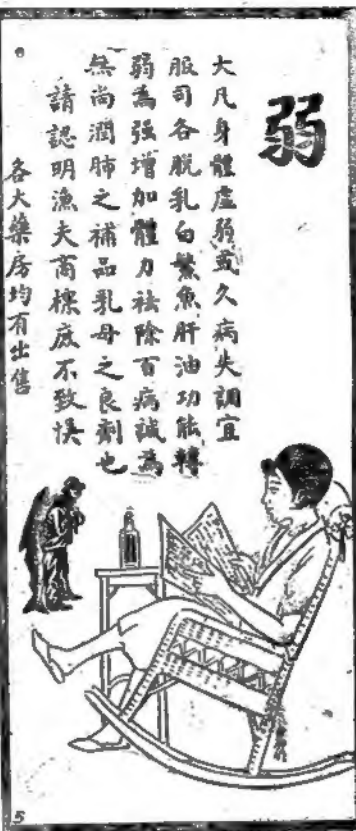 弱
大凡身體虛弱或久病失調宜
服司各脫乳白鰵魚肝油功能轉
弱為强增加體力祛除百病誠為
無尚潤肺之補品乳母之良劑也
請認明漁夫商標庶不致悞
各大藥房均有出售
5